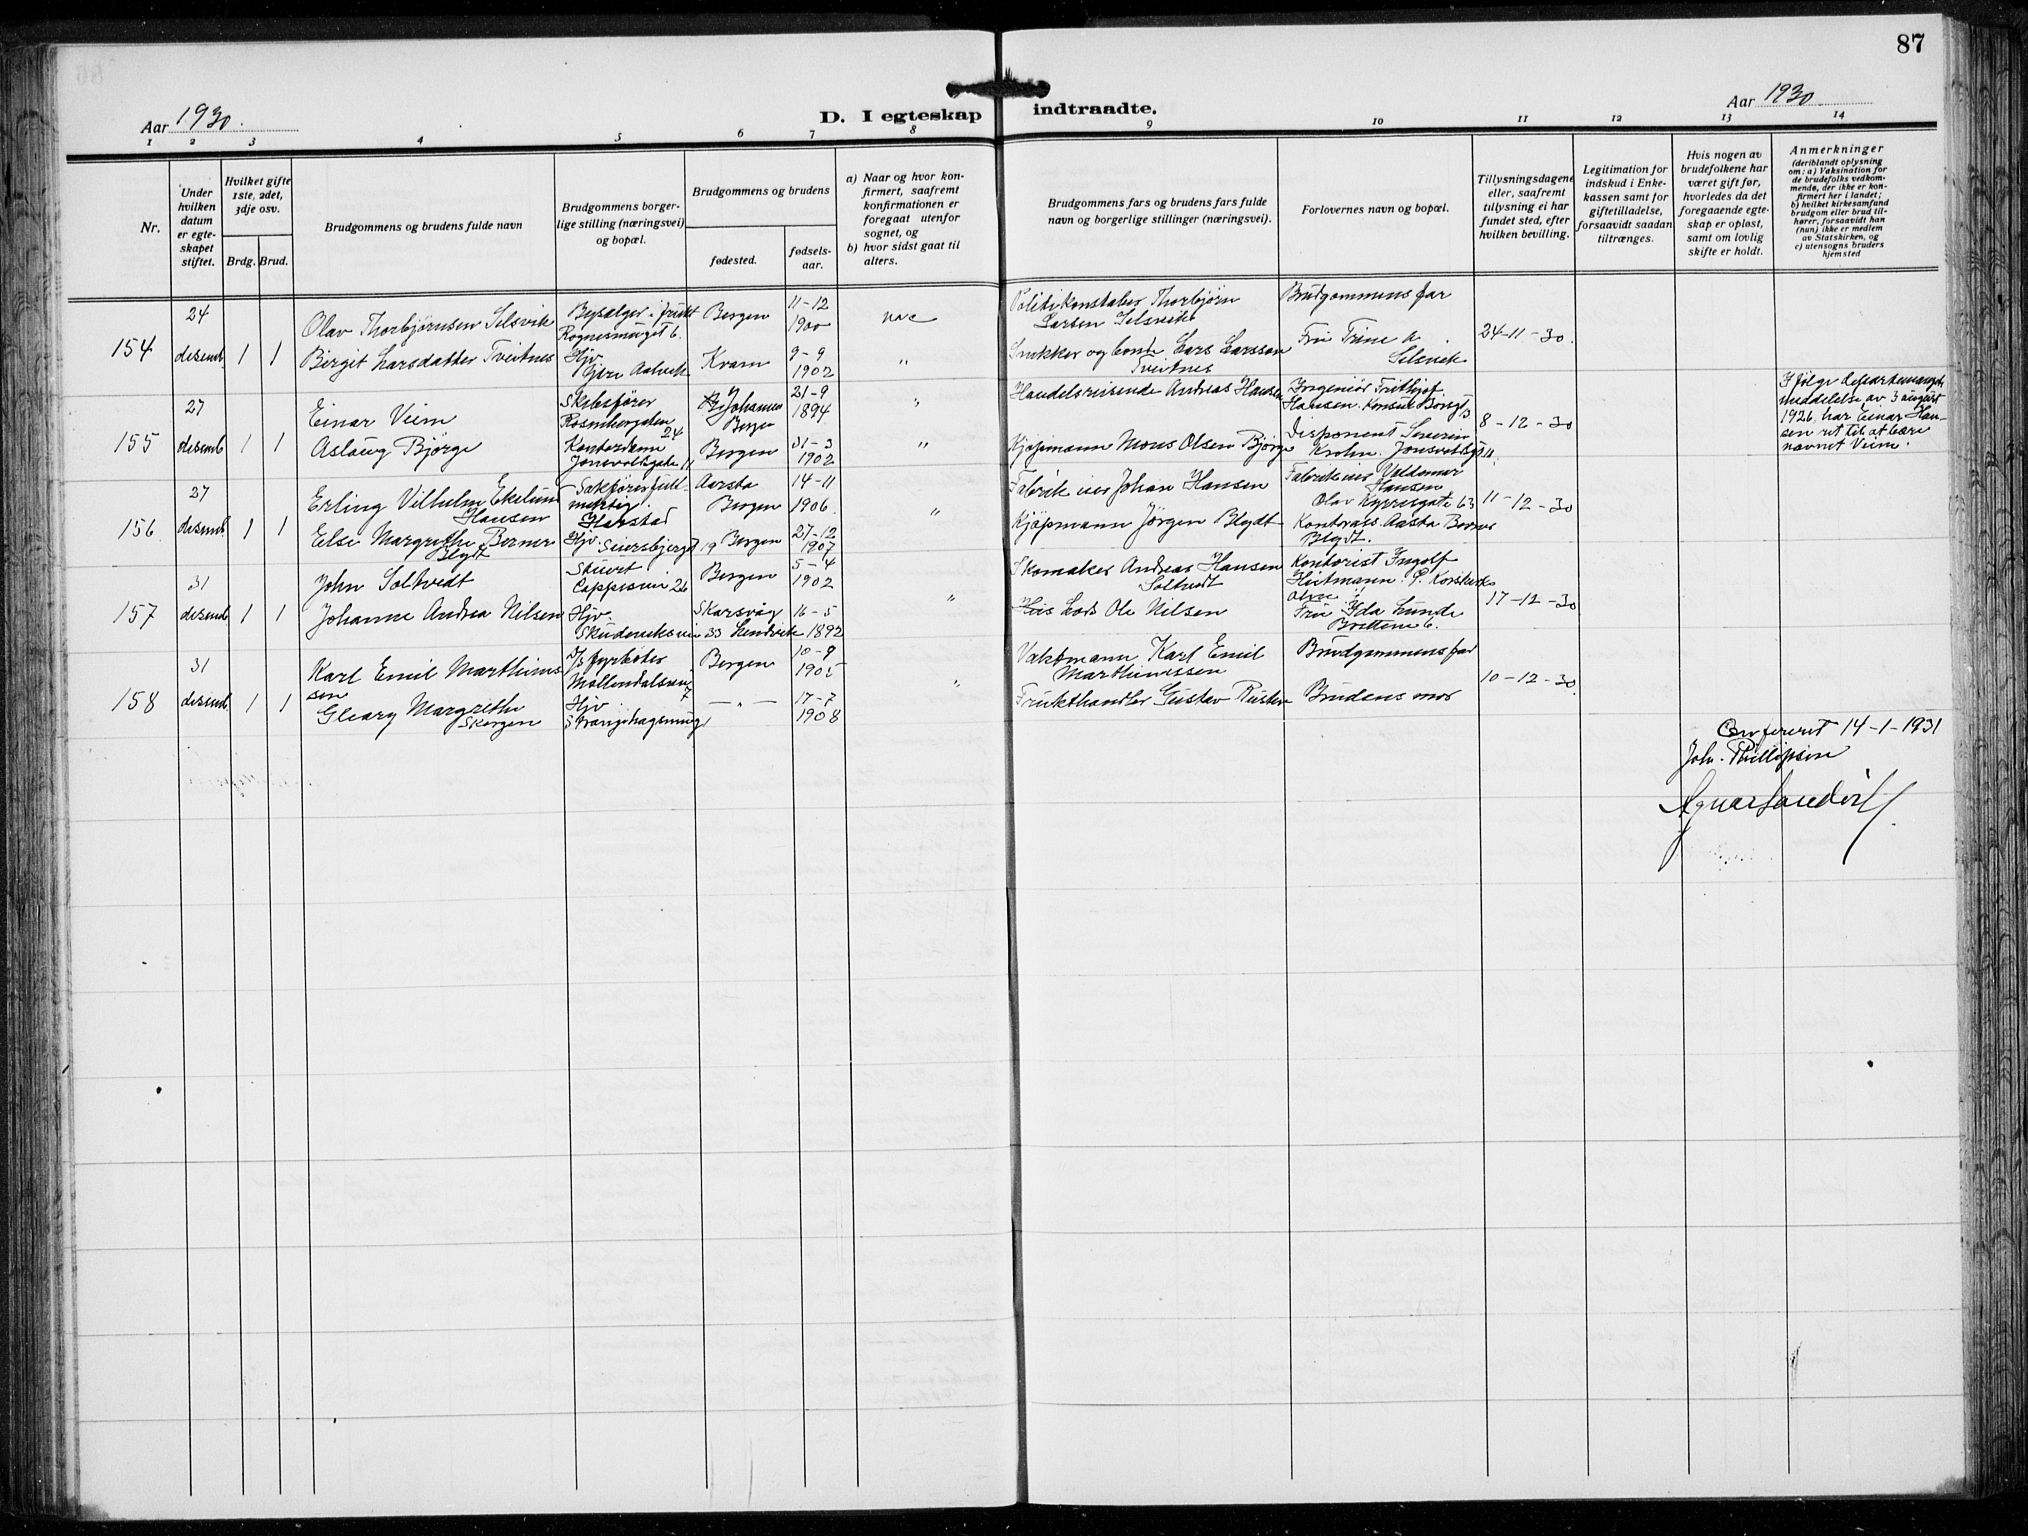 87
Aar 1930.
D. I egteskap indtraadte.
Aar 1930
1 2 3 4 5 6 7 8 9 10 11 12 13 14
Nr.
Under hvilken datum er egteskapet stiftet.
Hvilket gifte 1ste, 2det, 3dje osv.
Brdg. Brud.
Brudgommens og brudens fulde navn
Brudgommens borgerlige stilling (næringsvei) og bopæl.
Brudgommens og brudens
fødested.
fødselsaar.
a) Naar og hvor konfirmert, saafremt konfirmationen er foregaat utenfor sognet, og
b) hvor sidst gaat til alters.
Brudgommens fars og brudens fars fulde navn og borgerlige stillinger (næringsvei).
Forlovernes navn og bopæl.
Tillysningsdagene eller, saafremt tillysning ei har fundet sted, efter hvilken bevilling.
Legitimation for indskud i Enkekassen samt for giftetilladelse, forsaavidt saadan tiltrænges.
Hvis nogen av brudefolkene har været gift før, hvorledes da det foregaaende egteskap er opløst, samt om lovlig skifte er holdt.
Anmerkninger
(deriblandt oplysning om: a) Vaksination for de brudefolks vedkommende, der ikke er konfirmert her i landet; b) hvilket kirkesamfund brudgom eller brud tilhører, forsaavidt han (hun) ikke er medlem av Statskirken, og c) utensogns bruders hjemsted
154 24 desemb. 1 1
Olav Thorbjørnsen Selsvik
Bysælger i frukt
Rognesmuget 6.
Bergen 11-12 1900
Politikonstabel Thorbjørn Larsen Selsvik
Brudgommens far
24-11-30.
Birgit Larsdatter Tveitnes
Hjv
Kvam 9-9 1902 "
Snekker og Lars Larssen Tveitnes
Fru Trine Selsvik
155 27 desemb 1 1
Einar Veim
Skibsfører
Rosenbergsgaten 24
Johannes Bergen 21-9 1894 "
Handelsreisende Andreas Hansen
Ingeniør Frithjof Hansen.
8-12-30
I følge departementets meddelelse av 3 august 1926 har Einar Hansen ret til at bære navnet Veim.
Aslaug Bjørge
Kontordame
Bergen 31-3 1902 "
Kjøpmann Mons Olsen Bjørge
Disponent Severin Krohn.
156 27 desemb 1 1
Erling Vilhelm Ekelund Hansen
Sakførerfullmektig.
Harstad
Aarstad Bergen 14-11 1906.
Fabrikeier Johan Hansen
Fabrikeier Valdemar Hansen
Olav Kyrresgate 63
11-12-30
Else Margrethe Berner Blydt
Hjv Seiersbjerget 19
Bergen 27-12 1907 "
Kjøpmann Jørgen Blydt
Kontorass. Aasta Berner Blydt.
157 31 desemb 1 1
John Soltvedt
Skuvet
Cappesvei 26
Bergen 5-4 1902
Skomaker Andreas Hansen Soltvedt
Kontorist Ingolf
17-12-30
Johanne Andrea Nilsen
Hjv.
Skudeviksvei 33
Skarsvåg 16-5 1892 "
Lods Ole Nilsen
Fru Ida Lunde
158 31 desemb. 1 1
Karl Emil Marthinussen
D/s fyrbøter
Møllendalsvei 7
Bergen 10-9 1905
Vaktmann Karl Emil Marthinussen
Brudgommens far
10-12-30.
Gleary Margrethe Skorgen
Hjv
Strangehagsmug 1
— " — 17-7 1908 "
Frukthandler Gustav
Brudens mor
Confereret 14-1-1931
Joh. Phillipsen